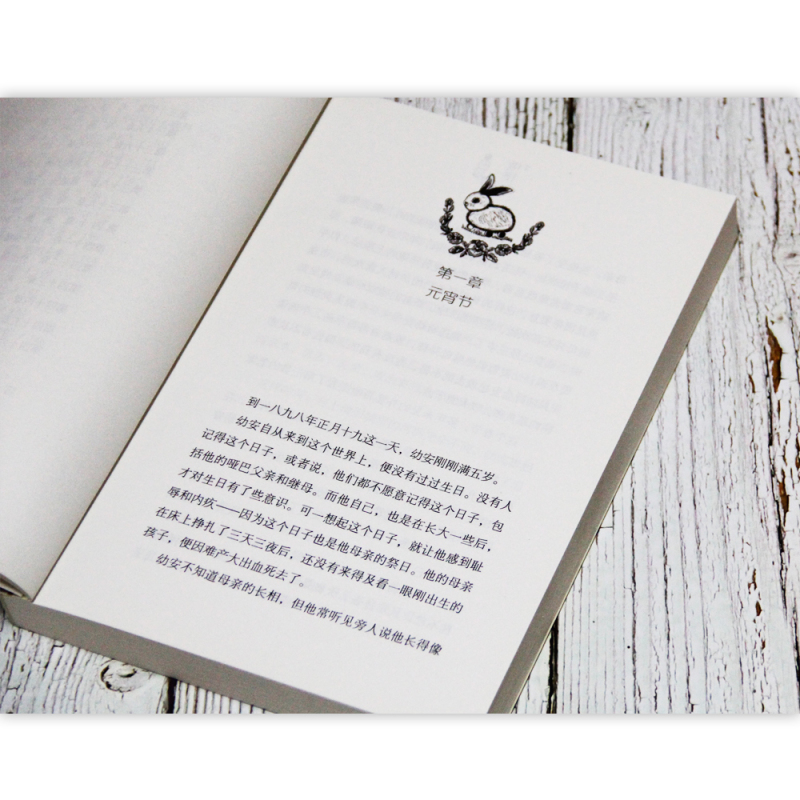 第一章
元宵节
到一八九八年正月十九这一天，幼安刚刚满五岁。
幼安自从来到这个世界上，便没有过过生日。没有人
记得这个日子，或者说，他们都不愿意记得这个日子，包
括他的哑巴父亲和继母。而他自己，也是在长大一些后，
才对生日有了些意识。可一想起这个日子，就让他感到耻
辱和内疚——因为这个日子也是他母亲的祭日。他的母亲
在床上挣扎了三天三夜后，还没有来得及看一眼刚出生的
孩子，便因难产大出血死去了。
幼安不知道母亲的长相，但他常听见旁人说他长得像